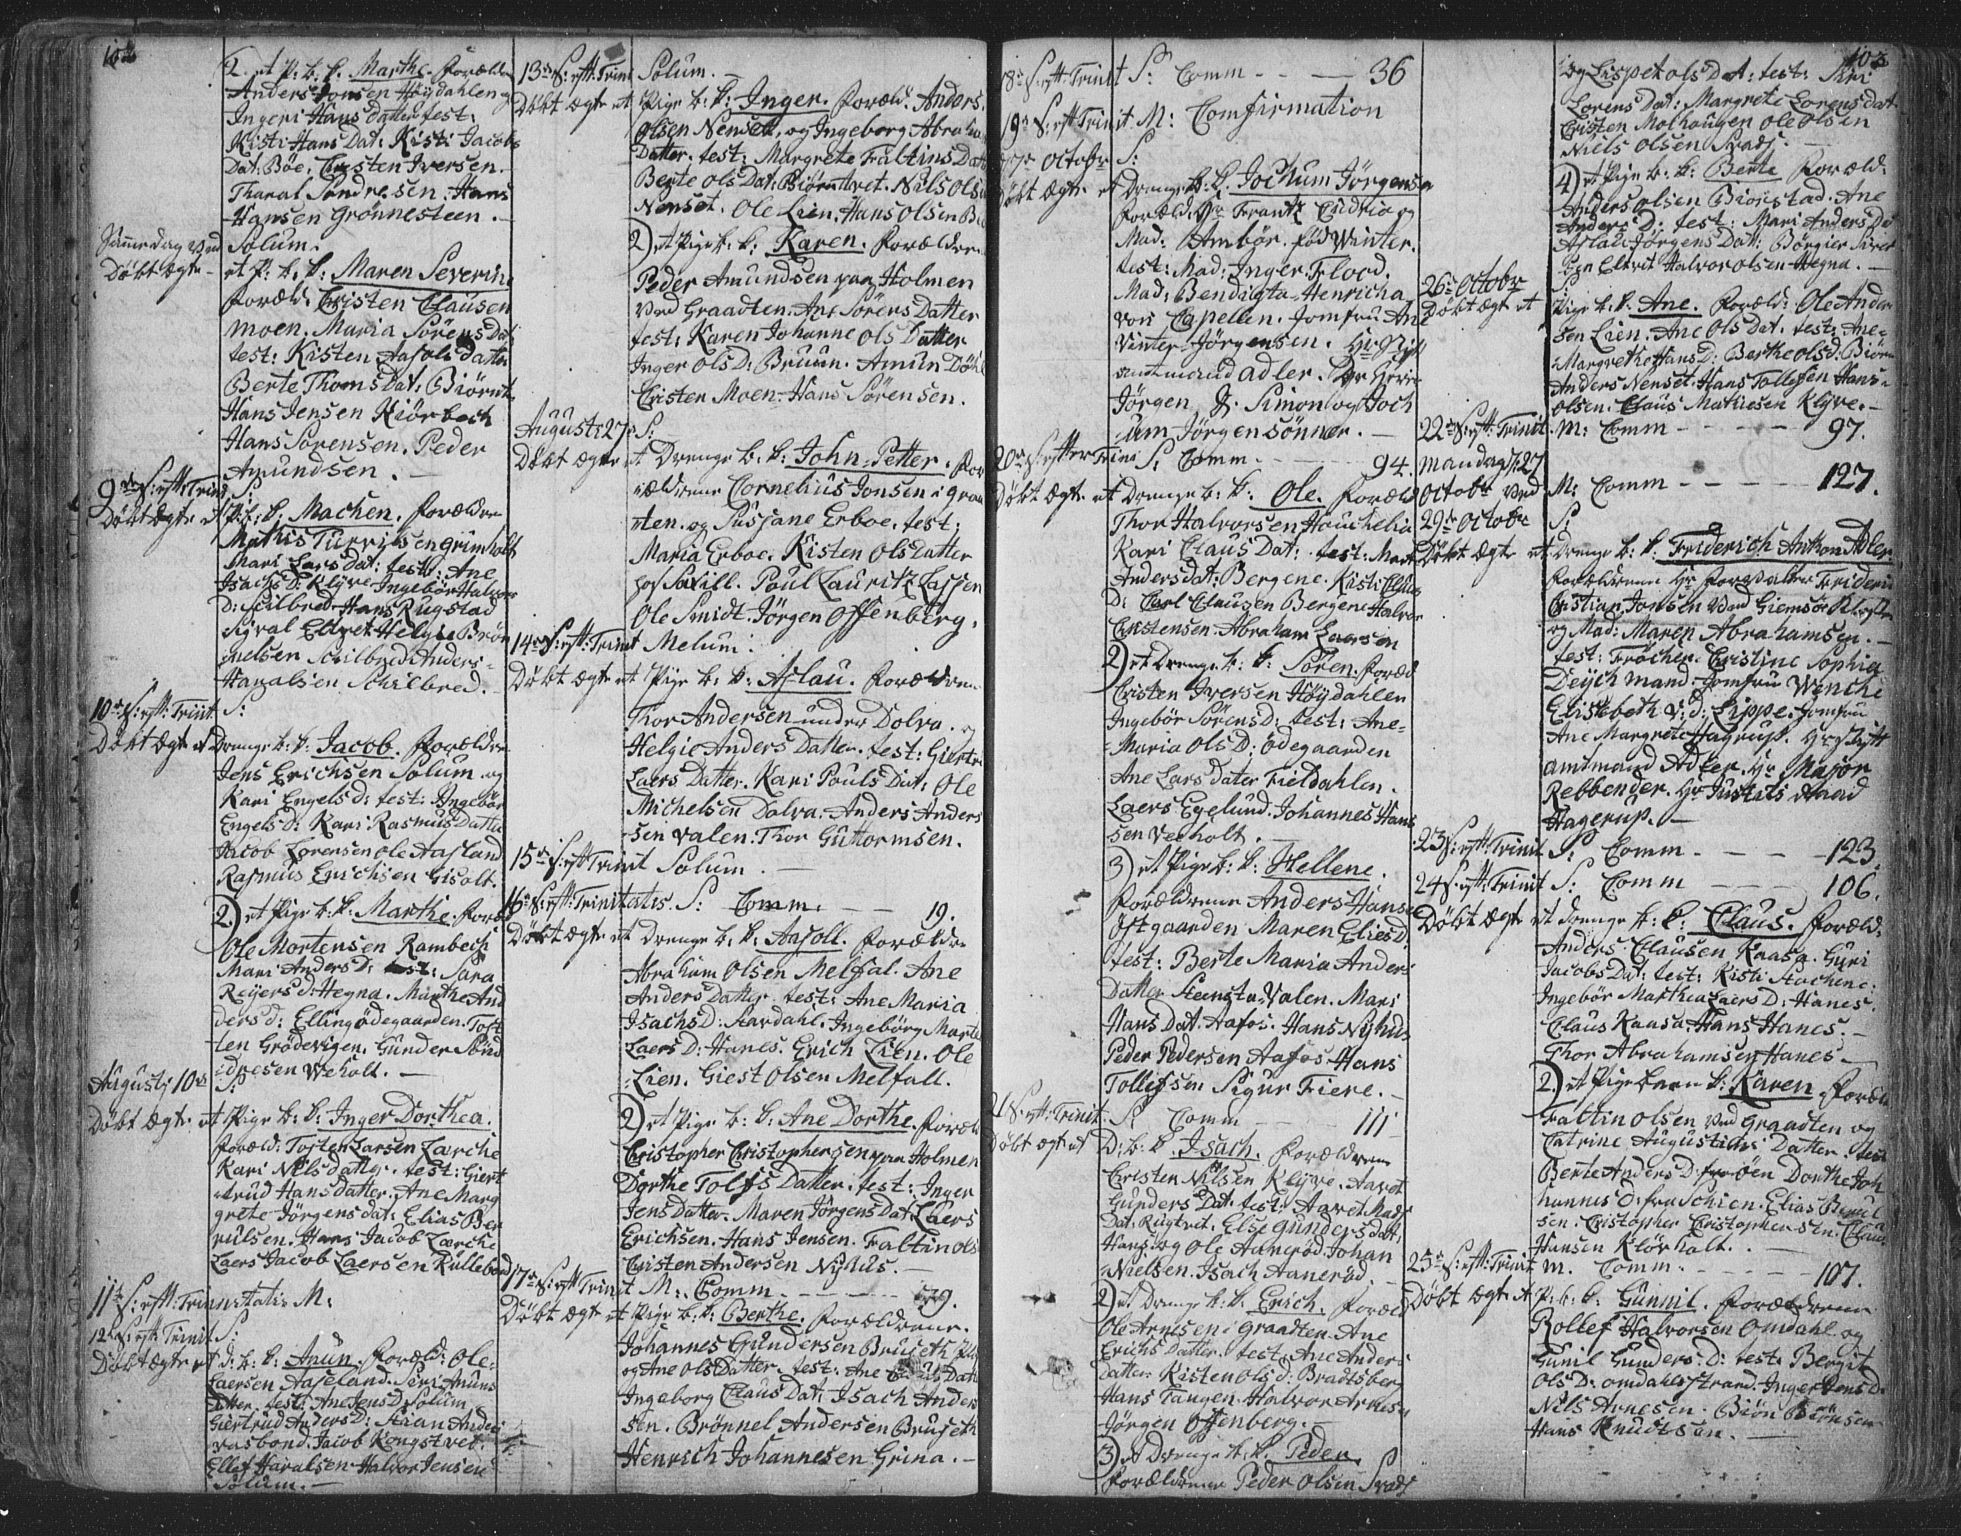 102
2. et P. b. k. Marthe. Forældre
Anders Jonsen Høydahlen og
Ingeri Hans datter test:
Kisti Hans Dat: Kisti Jacobs
Dat: Bøe, Cresten Iversen.
Tharal Sondresen. Hans
Hansen Grönnesteen.
Samme dag Ved Solum.
Döbt Ægte et P. b. k: Maren Severine
foræld: Cristen Clausen
Moen. Maria Sörens Dat
test: Kisten Aasols datter
Berte Thoms Dat: Biørnt.
Hans Jensen Kiörbech
Hans Sorensen. Peder
Amundsen.
9de S: eft: Trinit S:
Döbt Ægte et P: b: k. Machen. Forældre
Mathis Turrissen Grimholt
Mari Lars dat: test: Ane
Isachs D: Klyve Ingebör Halvors
D: Schilbred Hans Rugstad
Sigval Eltvet Helgie Brön
nelsen Schilbred Anders
Haralsen Schilbred.
10de S: eft: Trinit. S:
Döbt Ægte et Drenge b: k. Jacob. Forældre
Jens Erichsen Solum og
Kari Engels d: test: Ingebör
Engels d: Kari Rasmus Datter
Jacob Lorensen Ole Aasland
Rasmus Erichsen Gisolt.
2) et Pige b: k. Marthe. Foræld
Ole Mortensen Rambech
Mari Anders D: test: Sara
Reyers d: Hegna. Marthe And
ders d: Elling ödegaarden. Tost
ten Grödevigen. Gunder Sönd
dresen Veholt.
Augusti 10de S:
Döbt Ægte et Pige b: k: Inger Dorthea.
Foræld: Tosten Larsen Larche
Kari Nils datter. test: Giert
trud Hans datter. Ane Marg
grete Jörgens dat: Elias Ber
rulsen. Hans Jacob Larche
Laers Jacob Laersen Rullebond
11te S: eft: Trinitatis M:
12te S: eft: Trinit S:
Döbt Ægte et d: b: k: Anun. Foræld: Ole
Laersen Aaseland. Siri Anuns
Datter. test: Ane Jens D: Solum
Giertrud Anders D: Anders
Jacob Kongstvet.
Ellef Haralsen Halvor Jensen
Solum.
13de S: eft: Trinit Solum.
Döbt Ægte et Pige b: k: Inger. Foræld. Anders
Olsen Nenset, og Ingeborg Abraha
Datter. test: Margrete Faltins Datt
Berte Ols Dat: Biörntvet. Nils Olse
Nenset. Ole Lien. Hans Olsen
2) et Pige b. k: Karen. Forældrene
Peder Amundsen paa Holmen
Ved Graadten. Ane Sörens Datter
test: Karen Johanne Ols Datter
Inger Ols D: Bruun. Amun Döhl
Cristen Moen. Hans Sörensen.
Augusti 27de S:
Döbt Ægte et Drenge b. k: John Petter. For
ældrene Cornelius Jonsen i Graa
ten. og Susjane Erboe. test:
Maria Erboe. Kisten Ols Datter
Poul Lauritz Lassen
Ole Smidt. Jörgen Offenberg.
14de S: eft: Trinit Melum:
Döbt Ægte et Pige b. k: Aslau. Forældrene
Thor Andersen under Dolva. og
Helgie Anders Datter. test: Giertr
Laers Datter. Kari Pouls Dat: Ole
Michelsen Dolva. Anders Anders
sen Valen. Thor Guttormsen.
15de S: eft Trinit Solum.
16de S: eft: Trinitatis. S: Comm. 19.
Döbt Ægte et Drenge b. k. Aasoll. Forældre
Abraham Olsen Melfal. Ane
Anders Datter. test: Ane Maria
Isachs D: Aardahl. Ingebörg Marte
Laers D: Hanes. Erich Lien. Ole
Lien. Giest Olsen Melfall.
2) et Pige b: k: Ane Dorthe. Foræld
Cristopher Cristophersen paa Holmen
Dorthe Tolfs Datter. test: Inger
Jens Datter. Maren Jörgens Dat: Laers
Erichsen. Hans Jensen. Faltin Ols
Cristen Andersen Nyhus.
17de S: eft: Trinit M: Comm. 59.
Döbt Ægte et Pige b: k: Berthe. Forældrene
Johannes Gundersen Bruseth
og Ane Ols Datter. test: Ane Dat:
Ingeborg Claus Dat: Isach Ander
sen. Brönnel Andersen Bruseth
Henrich Johannesen Grina.
103
18de S: eft Trinit S: Comm 36
19de S: eft: Trinit. M: Comfirmation
17de Octobr S:
Döbt ægte et Drenge b. k. Jochum Jörgensen
Foræld: Hr Frantz Cudrio og
Mad: Ambör. föd Winter.
test: Mad: Inger Flood.
Mad: Bendigta Henricha
von Capellen. Jomfru Ane
Vinter Jörgensen. Hr Stift
amtmand Adler. Hr
Jörgen J. Simon og Joch
um Jörgensönner.
20de S: efter Trini S: Comm 94.
Döbt Ægte et Drenge b. k. Ole. Foræld
Thor Halvorsen Houchelia
Kari Claus Dat: test: Mart
Anders dat: Bergene. Kisti Claus
D: Carl Clausen Bergene Halvor
Cristensen. Abraham Larsen
2) et Drenge b: k: Sören. Foræld
Cristen Iversen Höydahlen
Ingebör Sörens D: test: Ane
Maria Ols D: ödegaarden
Ane Lars dater Fieldahlen.
Laers Egelund. Johannes Hans
sen Veeholt.
3) et Pige b: k: Hellene.
Forældrene Anders Hansen
Østgaarden Maren Elies D:
test: Berte Maria Anders
Datter Steensta Valen. Mari
Hans Dat. Aafos. Hans Nyhus
Peder Pedersen Aafos Hans
Tollefsen Sigur Fiere.
21 S: eft: Trinit S: Comm 111
Döbt ægte et D: b: k. Isach. Forældrene
Cristen Nilsen Klyve. Aaret
Gunders Dat: test: Aaret Mads
Dat: Rugtvet. Else Gunders dat:
Hans og Ole Aanerød. Johan
Nielsen. Isach Aanerød.
2) et Drenge b: k: Erich. Foræld
Ole Arnesen i Graadten. Ane
Erichs Datter. test: Ane Anders
datter. Kisten Ols d: Bradtsberg
Hans Tangen. Halvor Arnesen
Jörgen Offenberg.
3) et Drenge b. k. Peder.
Forældrene Peder Olsen
og Lispet Ols Dat: test: Siri
Lorens Dat: Margrete Lorens dat
Cristen Molhaugen Ole Olsen
Niels Olsen.
4) et Pige b: k: Berte Foræld:
Anders Olsen Biørstad. Ane
Anders D: test: Mari Anders D:
Aslau Jörgens Dat: Börgier Siver
sen Eltvet Halvor Olsen Hegna.
26de Octobr S:
Döbt ægte et Pige b. k: Ane. Foræld: Ole Ander
sen Lien. Ane Ols Dat. test: Ane
Margrethe Hans D: Berthe Ols d: Biørn
Anders Nenset. Hans Tollefsen Hans
Olsen. Claus Mathiesen Klyve.
22de S: eft: Trinit. M: Comm 97.
Mandag d: 27
Octobr Ved M: Comm 127.
29de Octobr S:
Döbt ægte et Drenge b. k. Friderich Anthon Adler.
Forældrene Hr Forvalter Frideric
Cristian Jonsen Ved Giemsöe Kloster
og Mad: Maren Abrahamsen.
test: Fröchen Cristine Sophia
Deichmand. Jomfru Wenche
Elisebeth v: d: Lippe. Jomfru
Ane Margrete Hagrup. Hr Stift
amtmand Adler. Hr Major
Rebbender. Hr Justits Raad
Hagerup.
23 S: eft: Trinit S: Comm 123
24 S: eft: Trinit S: Comm 106.
Döbt Ægte et drenge b: k. Claus. Foræld:
Anders Clausen Kaasa. Guri
Jacobs Dat: test: Kisti
Ingebör Marthea Laers D: Hanes.
Claus Kaasa. Hans Hanes.
Thor Abrahamsen Hanes
2) et Pigebarn k: Karen. Foræld
Faltin Olsen Ved Graadten og
Catrine Augustinus Datter. test
Berte Anders D: fra öen Dorthe Joh
hannes d: fra Schien. Elias Berul
sen. Cristopher Cristophersen. Claus
Hansen Klövholt.
25de S: eft: Trinit M. Comm. 107.
Döbt Ægte et P: b. k: Gunnil. Forældrene
Rollef Halvorsen Omdahl og
Gunil Gunders D: test: Bergit
Ols D: Omdahlsstrand. Inger Jens D:
Nils Arnesen. Biøn Biönsen
Hans Knudtsen.